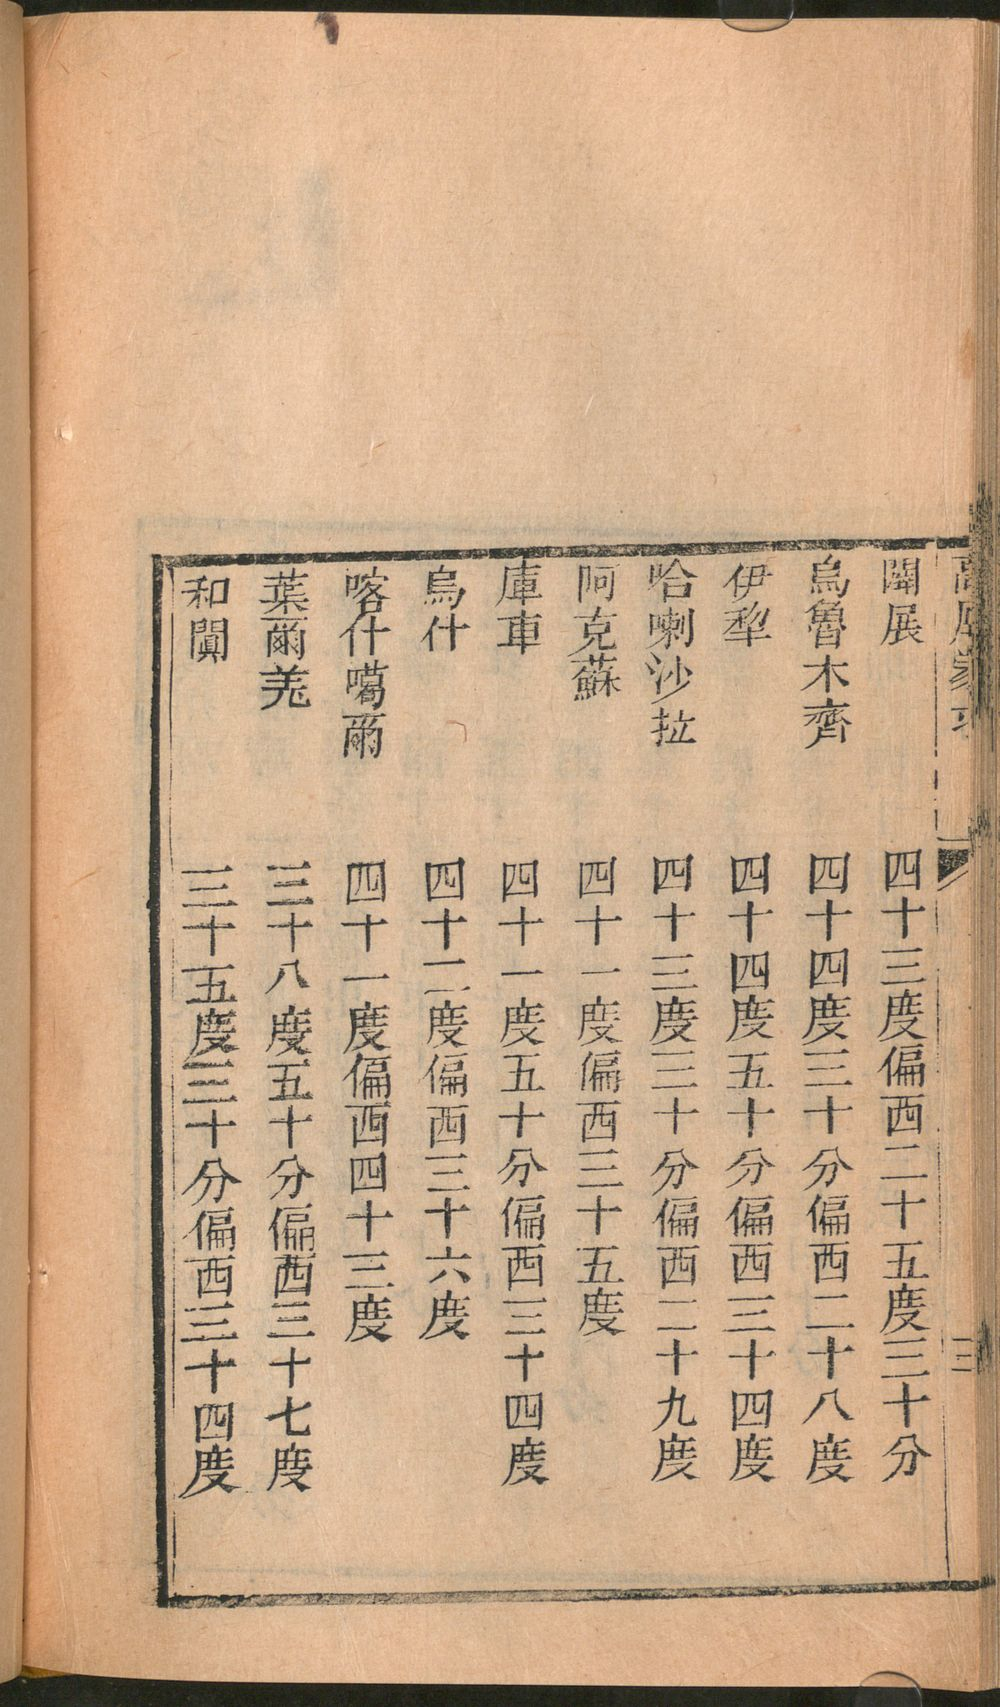 闢展　四十三度偏西二十五度三十分
烏魯木齊　四十四度三十分偏西二十八度
伊犂　四十四度五十分偏西三十四度
哈喇沙拉　四十三度三十分偏西二十九度
阿克蘇　四十一度偏西三十五度
庫車　四十一度五十分偏西三十四度
烏什　四十二度偏西三十六度
喀什噶爾　四十一度偏西四十三度
葉爾羌　三十八度五十分偏西三十七度
和闐　三十五度三十分偏西三十四度
三